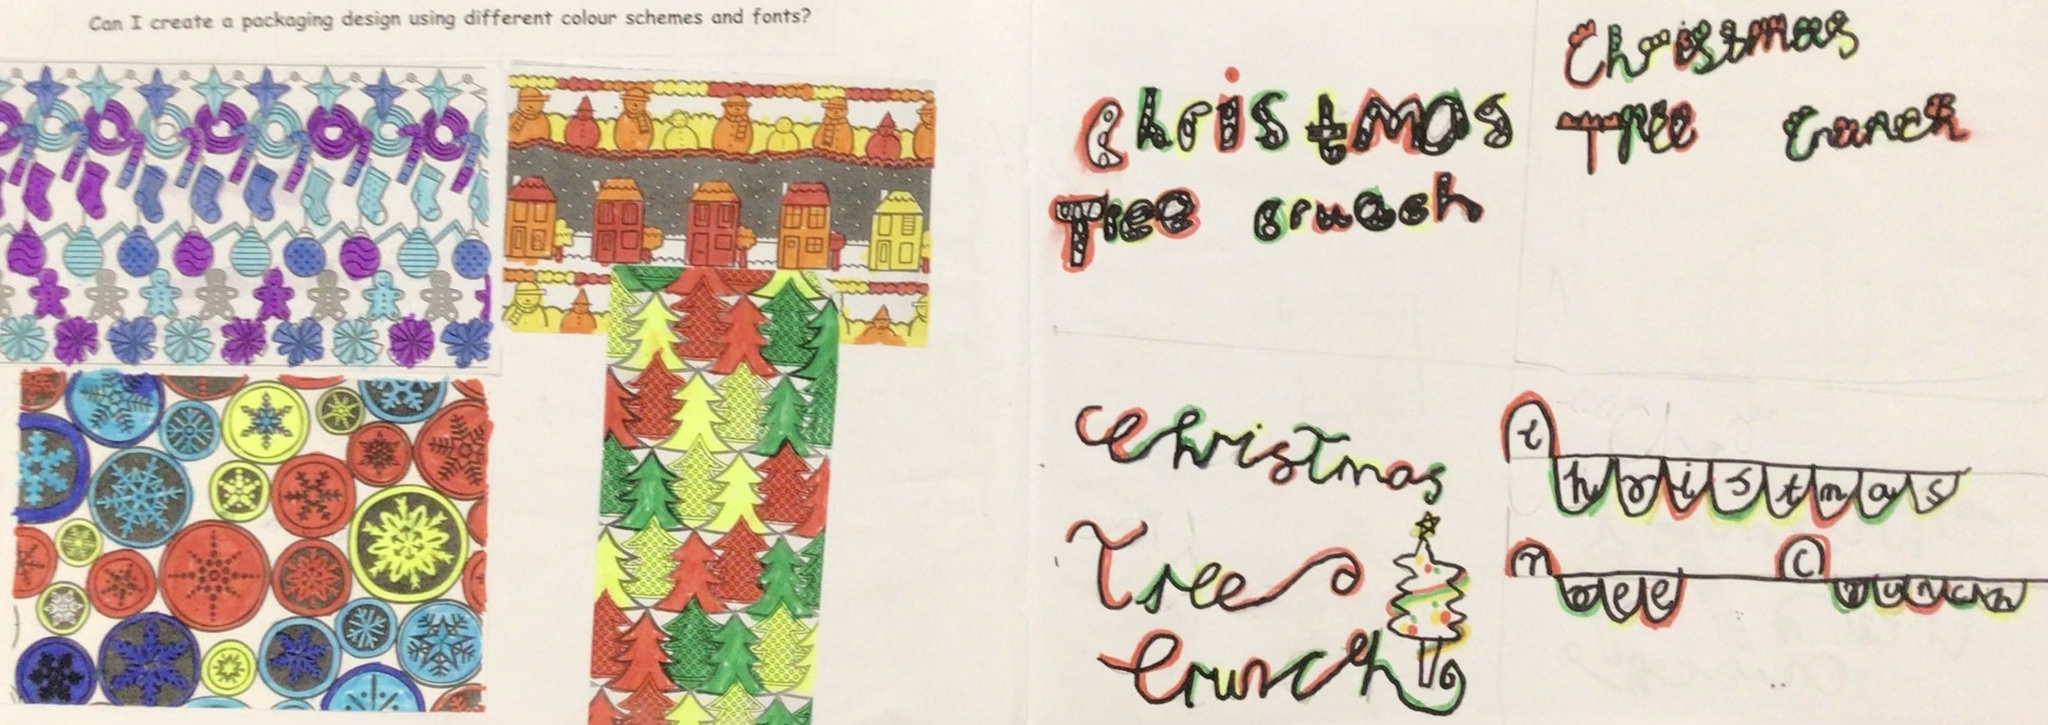 Can I create a packaging design using different colour schemes and fonts?
Christmas
Tree crunch
Christmas
Tree Crunch
Christmas
Tree
Crunch
Christmas
Tree Crunch